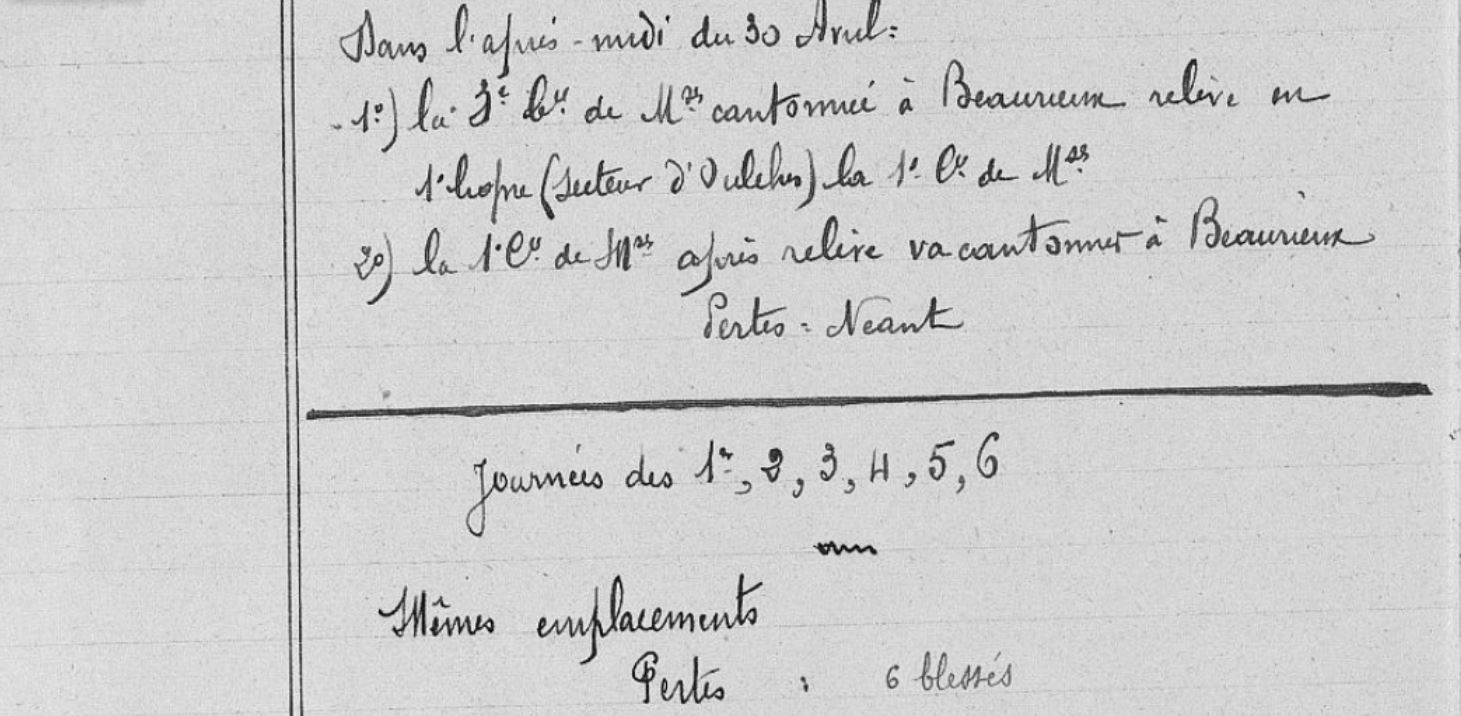 Dans l'après-midi du 30 Avril:
1º) la 3e Cie de Mses cantonnée à Beaurieux relève en
1e ligne (secteur d'Oulches) la 1e Cie de Mses
2º) la 1e Cie de Mses après relève va cantonner à Beaurieux
Pertes: Néant
Journées des 1er, 2, 3, 4, 5, 6
Mêmes emplacements
Pertes : 6 blessés